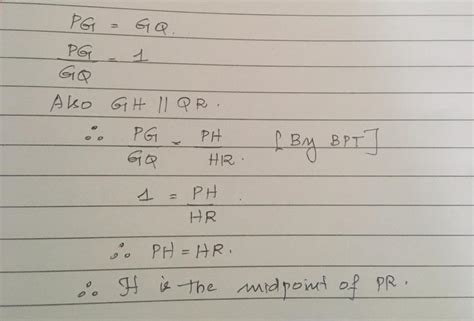 PG = GQ.
PG/GQ = 1
Also GH || QR.
∴ PG/GQ = PH/HR. [By BPT]
1 = PH/HR.
∴ PH = HR.
∴ H is the midpoint of PR.